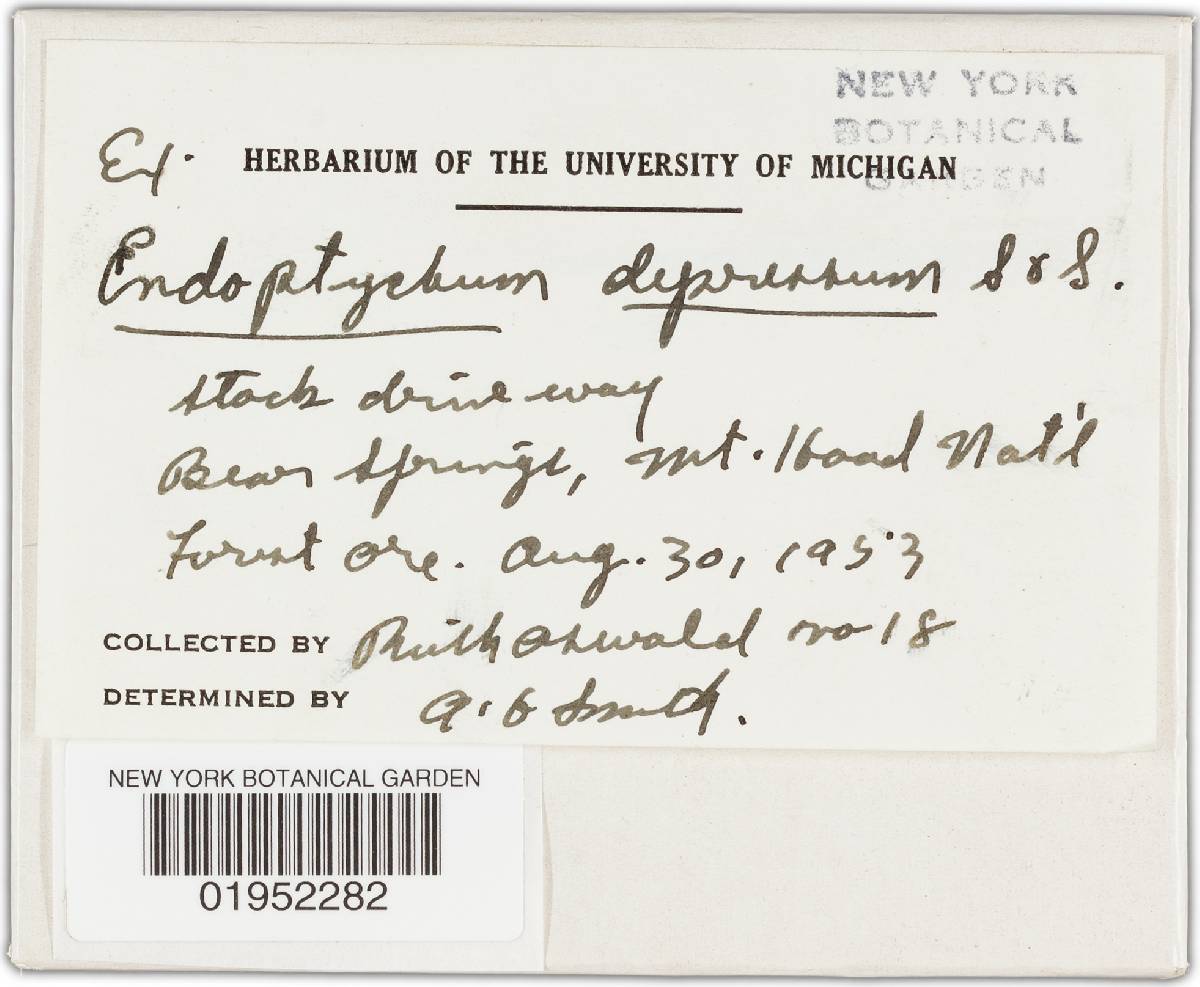 NEW YORK
BOTANICAL
GARDEN
Ex. HERBARIUM OF THE UNIVERSITY OF MICHIGAN
Endoptychum depressum S & S.
stock drive way
Bear Springs, Mt. Hood Nat'l
Forest Ore. Aug. 30, 1953
COLLECTED BY Ruth Oswald no 18
DETERMINED BY A. H Smith.
NEW YORK BOTANICAL GARDEN
01952282